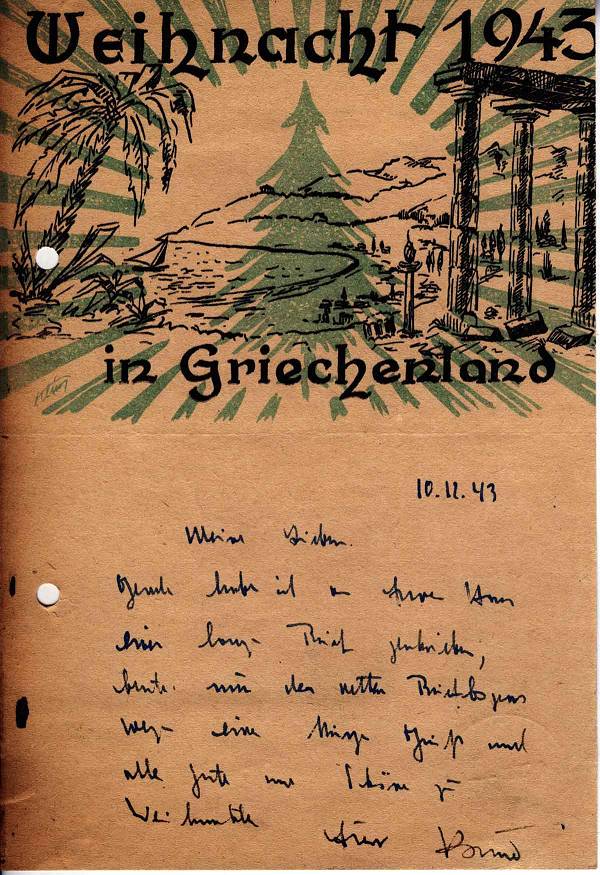 Weihnacht 1943
in Griechenland
10.12.43
Meine Lieben.
habe ich an
einen Brief geschrieben,
heute nur des netten
einen Gruß und
alles Gute und Schöne zu
Weihnachten Euer Bruno